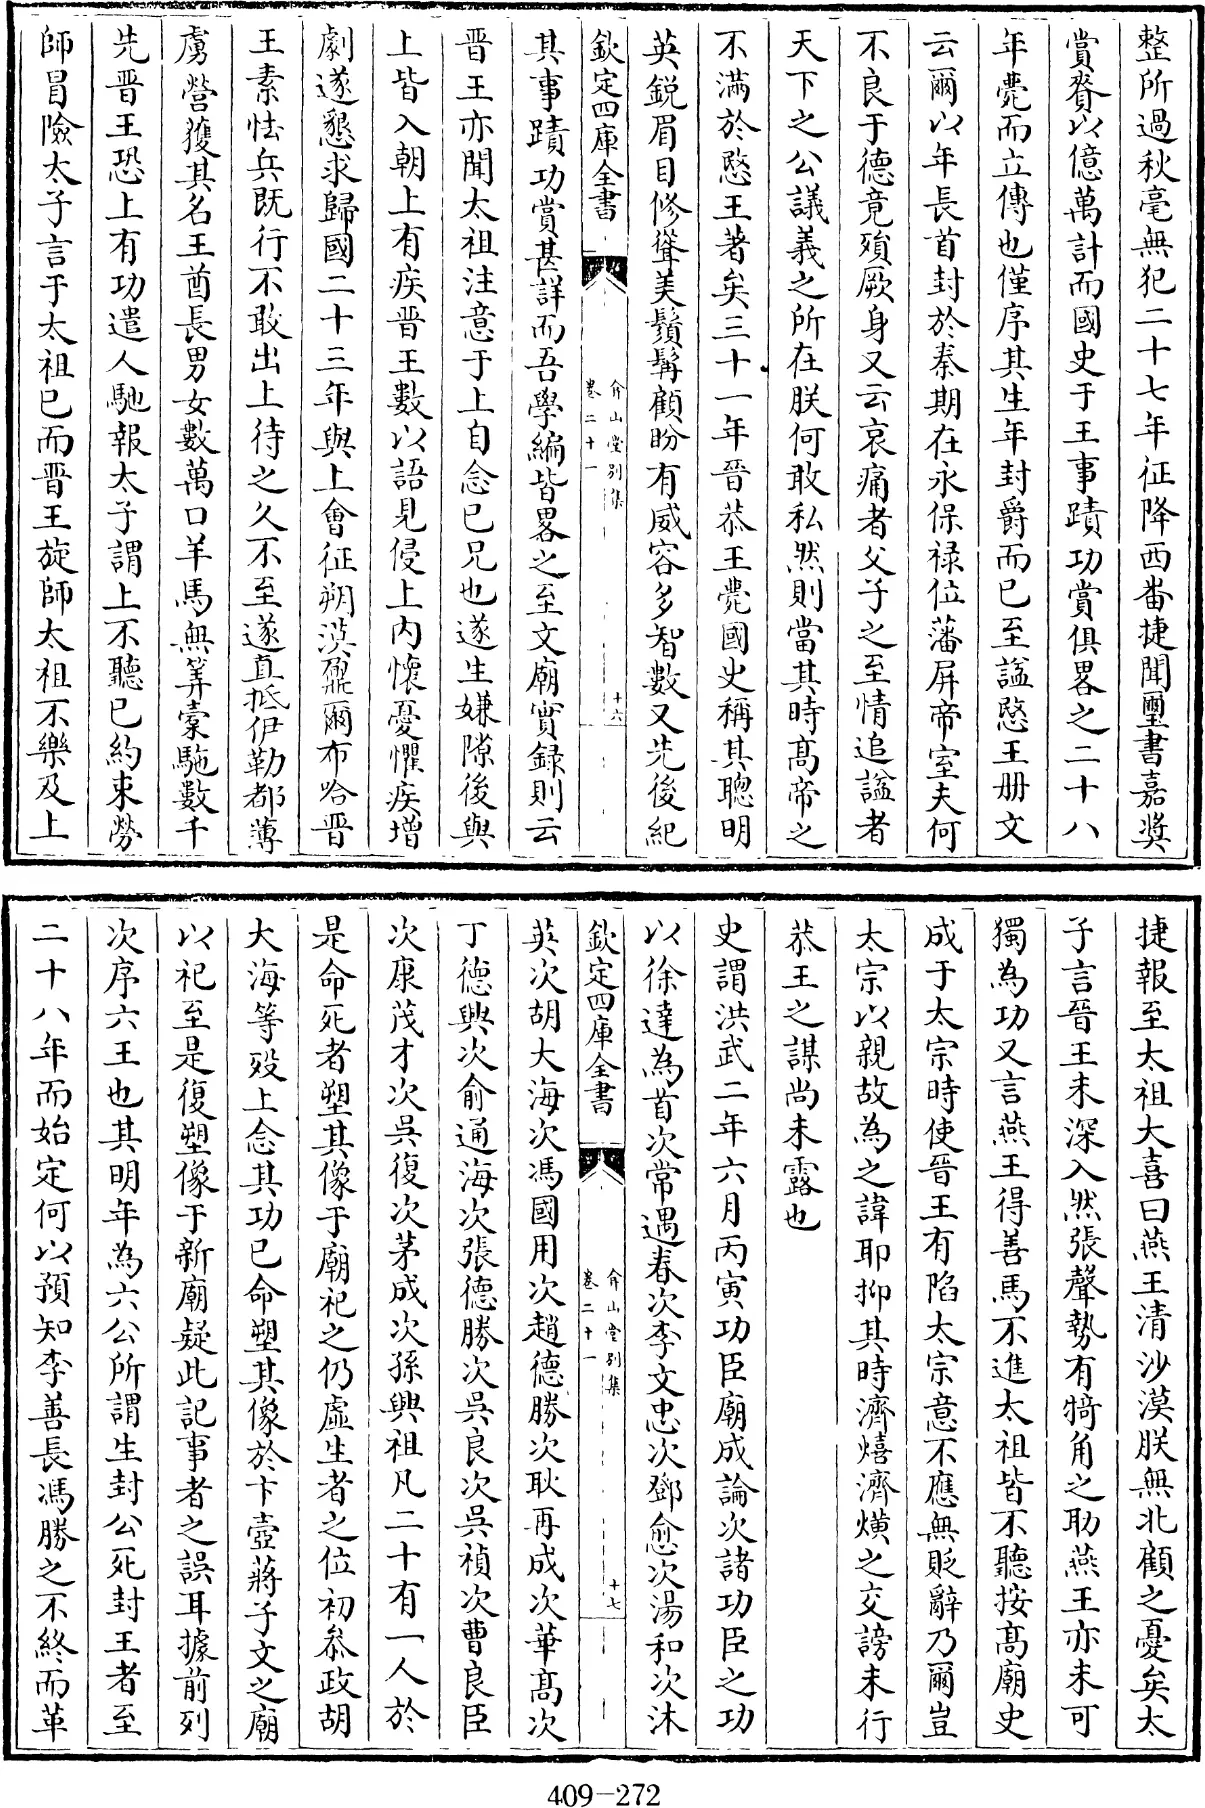 整所過秋毫無犯二十七年征降西番捷聞璽書嘉奬
賞賚以億萬計而國史于王事蹟功賞俱畧之二十八
年薨而立傳也僅序其生年封爵而已至諡愍王册文
云爾以年長首封於秦期在永保禄位藩屏帝室夫何
不良于德竟殞厥身又云哀痛者父子之至情追諡者
天下之公議義之所在朕何敢私然則當其時高帝之
不滿於愍王著矣三十一年晉恭王薨國史稱其聰明
英鋭眉目修聳美鬚髯顧盼有威容多智數又先後紀
欽定四庫全書
弇山堂别集
卷二十一
十六
其事蹟功賞甚詳而吾學編皆畧之至文廟實録則云
晋王亦聞太祖注意于上自念已兄也遂生嫌隙後與
上皆入朝上有疾晋王數以語見侵上内懷憂懼疾增
劇遂懇求歸國二十三年與上會征朔漠鼐爾布哈晋
王素怯兵既行不敢出上待之久不至遂直抵伊勒都薄
虜營獲其名王酋長男女數萬口羊馬無筭橐駞數千
先晋王恐上有功遣人馳報太子謂上不聽已約束勞
師冒險太子言于太祖已而晋王旋師太祖不樂及上
捷報至太祖大喜曰燕王清沙漠朕無北顧之憂矣太
子言晉王未深入然張聲勢有犄角之助燕王亦未可
獨為功又言燕王得善馬不進太祖皆不聽按高廟史
成于太宗時使晉王有陷太宗意不應無貶辭乃爾豈
太宗以親故為之諱耶抑其時濟熺濟熿之交謗未行
恭王之謀尚未露也
史謂洪武二年六月丙寅功臣廟成論次諸功臣之功
以徐達為首次常遇春次李文忠次鄧愈次湯和次沐
欽定四庫全書
弇山堂别集
卷二十一
十七
英次胡大海次馮國用次趙德勝次耿再成次華高次
丁德興次俞通海次張德勝次吳良次吳禎次曹良臣
次康茂才次吳復次茅成次孫興祖凡二十有一人於
是命死者塑其像于廟祀之仍虛生者之位初叅政胡
大海等歿上念其功已命塑其像於卞壺蔣子文之廟
以祀至是復塑像于新廟疑此記事者之誤耳據前列
次序六王也其明年為六公所謂生封公死封王者至
二十八年而始定何以預知李善長馮勝之不終而革
409-272